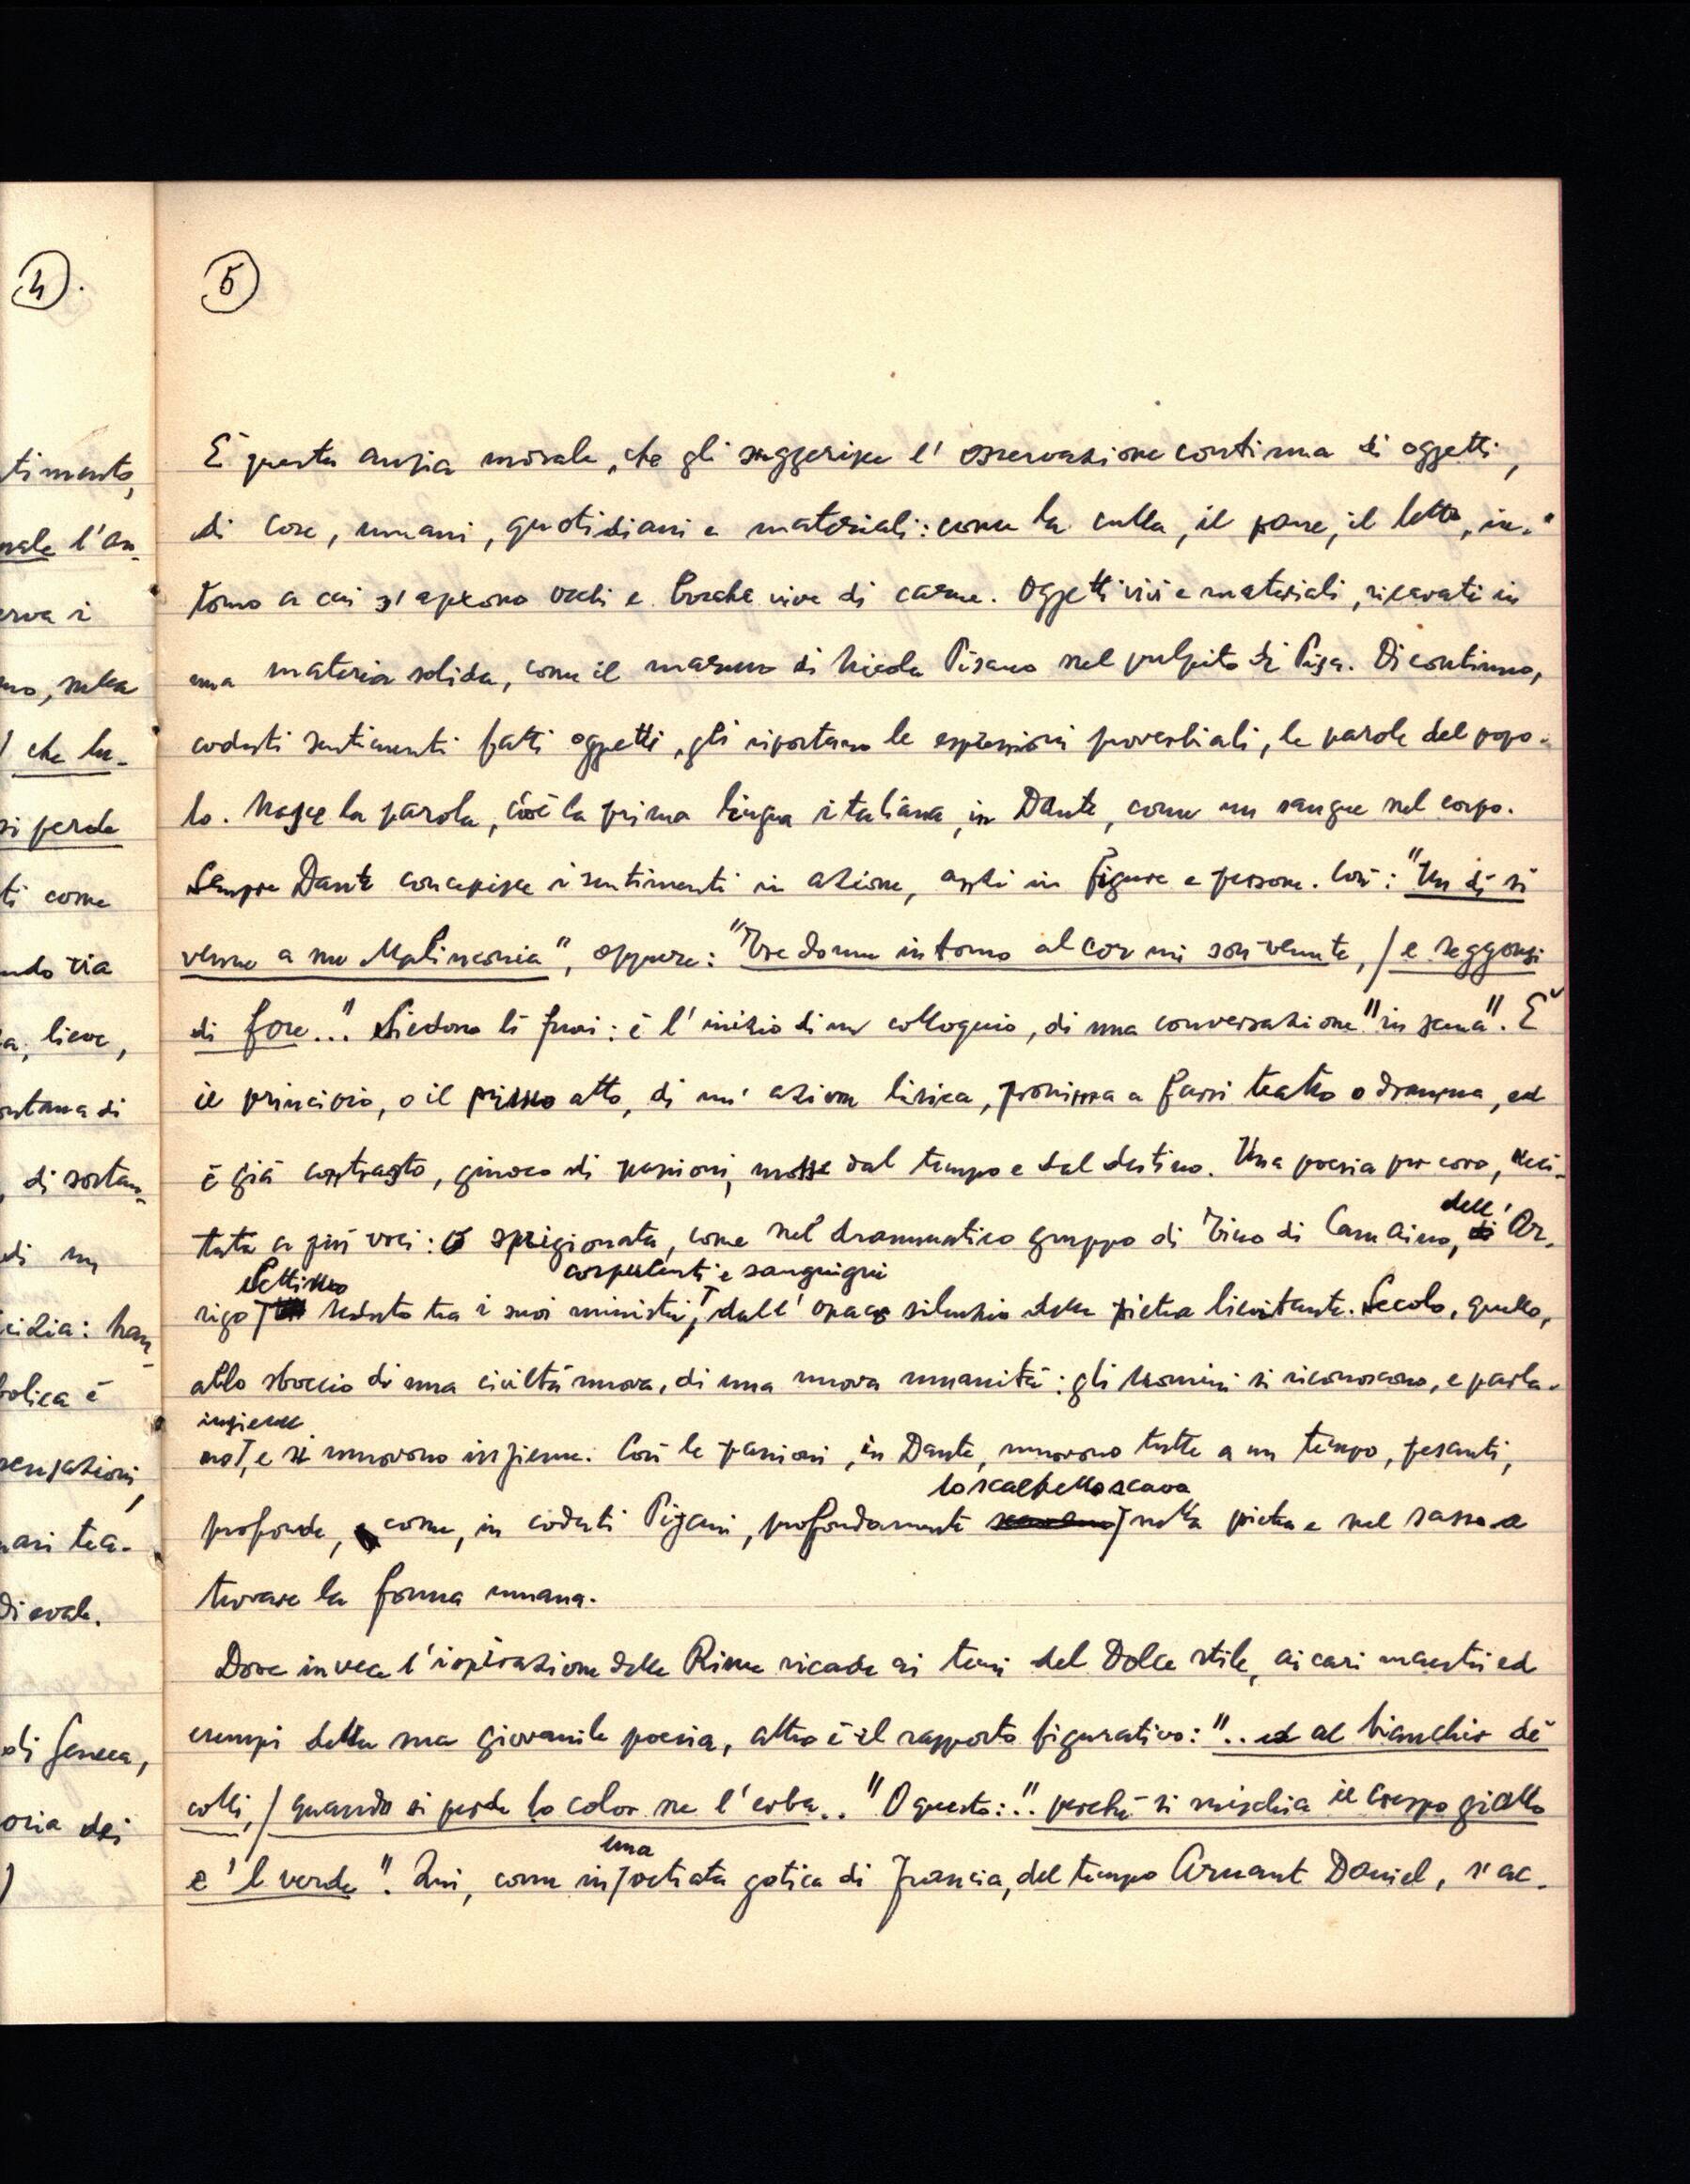 4.
timento,
rale l'an-
erva i
mo, sulla
) che lu-
si perde
ti come
ndo via
a, lieve,
ontana di
, di sortan-
di un
icilia: han-
bolica è
sensazioni,
ari tea-
dievale.
di Seneca,
oria dei
)
5
È questa ansia morale, che gli suggerisce l'osservazione continua di oggetti,
di cose, umani, quotidiani e materiali: come la culla, il pane, il letto, in-
torno a cui s'aprono occhi e bocche vive di carne. Oggetti vivi e materiali, ricavati in
una materia solida, come il marmo di Nicola Pisano nel pulpito di Pisa. Di continuo,
codesti sentimenti fatti oggetti, gli riportano le espressioni proverbiali, le parole del popo-
lo. Nasce la parola, cioè la prima lingua italiana, in Dante, come un sangue nel corpo.
Sempre Dante concepisce i sentimenti in azione, anzi in figure e persone. Così: "Un dì si
venne a me Malinconia", oppure: "Tre donne intorno al cor mi son venute, / e seggonsi
di fore..." Siedono lì fuori: è l'inizio di un colloquio, di una conversazione "in scena". È
il principio, o il primo atto, di un'azione lirica, promossa a farsi teatro o dramma, ed
è già contrasto, giuoco di passioni, mosse dal tempo e dal destino. Una poesia per coro, reci-
tata a più voci: è sprigionata, come nel drammatico gruppo di Tino di Camaino, di dell'Ar-
rigo Settimo seduto tra i suoi ministri, corpulenti e sanguigni dall'opaco silenzio della pietra lievitante. Secolo, quello,
allo sboccio di una civiltà nuova, di una nuova umanità: gli uomini si riconoscono, e parla-
no insieme, e si muovono insieme. Così le passioni, in Dante, muovono tutte a un tempo, pesanti,
profonde, come, in codesti Pisani, profondamente lo scalpello scava nella pietra e nel sasso a
trovare la forma umana.
Dove invece l'ispirazione delle Rime ricade ai temi del Dolce stile, ai cari maestri ed
esempi della sua giovanile poesia, altro è il rapporto figurativo: ".. ed al bianchir de'
colli, / quando si perde lo color ne l'erba.." O questo: ".. perché si mischia il crespo giallo
e 'l verde". Qui, come in una vetrata gotica di Francia, del tempo Arnaut Daniel, s'ac-